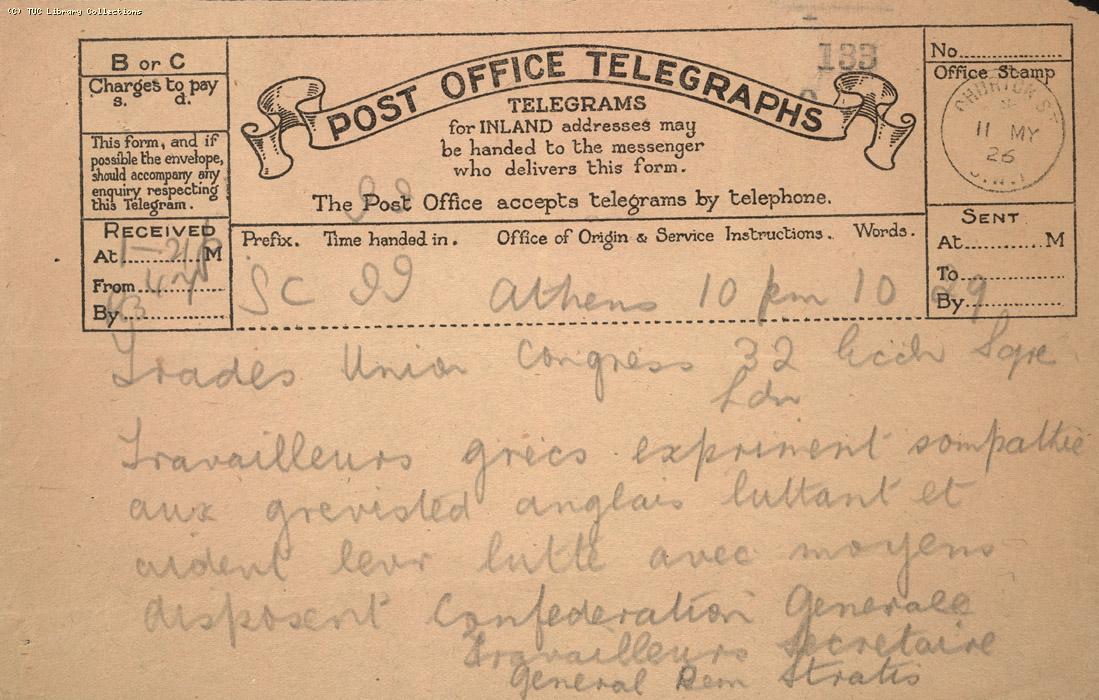 (C) TUC Library Collections
133
B or C
Charges to pay
s. d.
This form, and if
possible the envelope,
should accompany any
enquiry respecting
this Telegram.
POST OFFICE TELEGRAPHS
TELEGRAMS
for INLAND addresses may
be handed to the messenger
who delivers this form.
The Post Office accepts telegrams by telephone.
No
Office Stamp
CHURTON ST
11 MY
26
S.W.1
RECEIVED
At M
From
By
Prefix. Time handed in. Office of Origin & Service Instructions. Words.
SC 99 Athens 10 pm 10
SENT
At M
To
By
29
Trades Union Congress 32 Eccle Sqre
Ldn
Travailleurs grecs expriment sompathie
aux grevisted anglais luttant et
aident leur lutte avec moyens
disposent Confederation Generale
Travailleurs Secretaire
General Dem Stratis